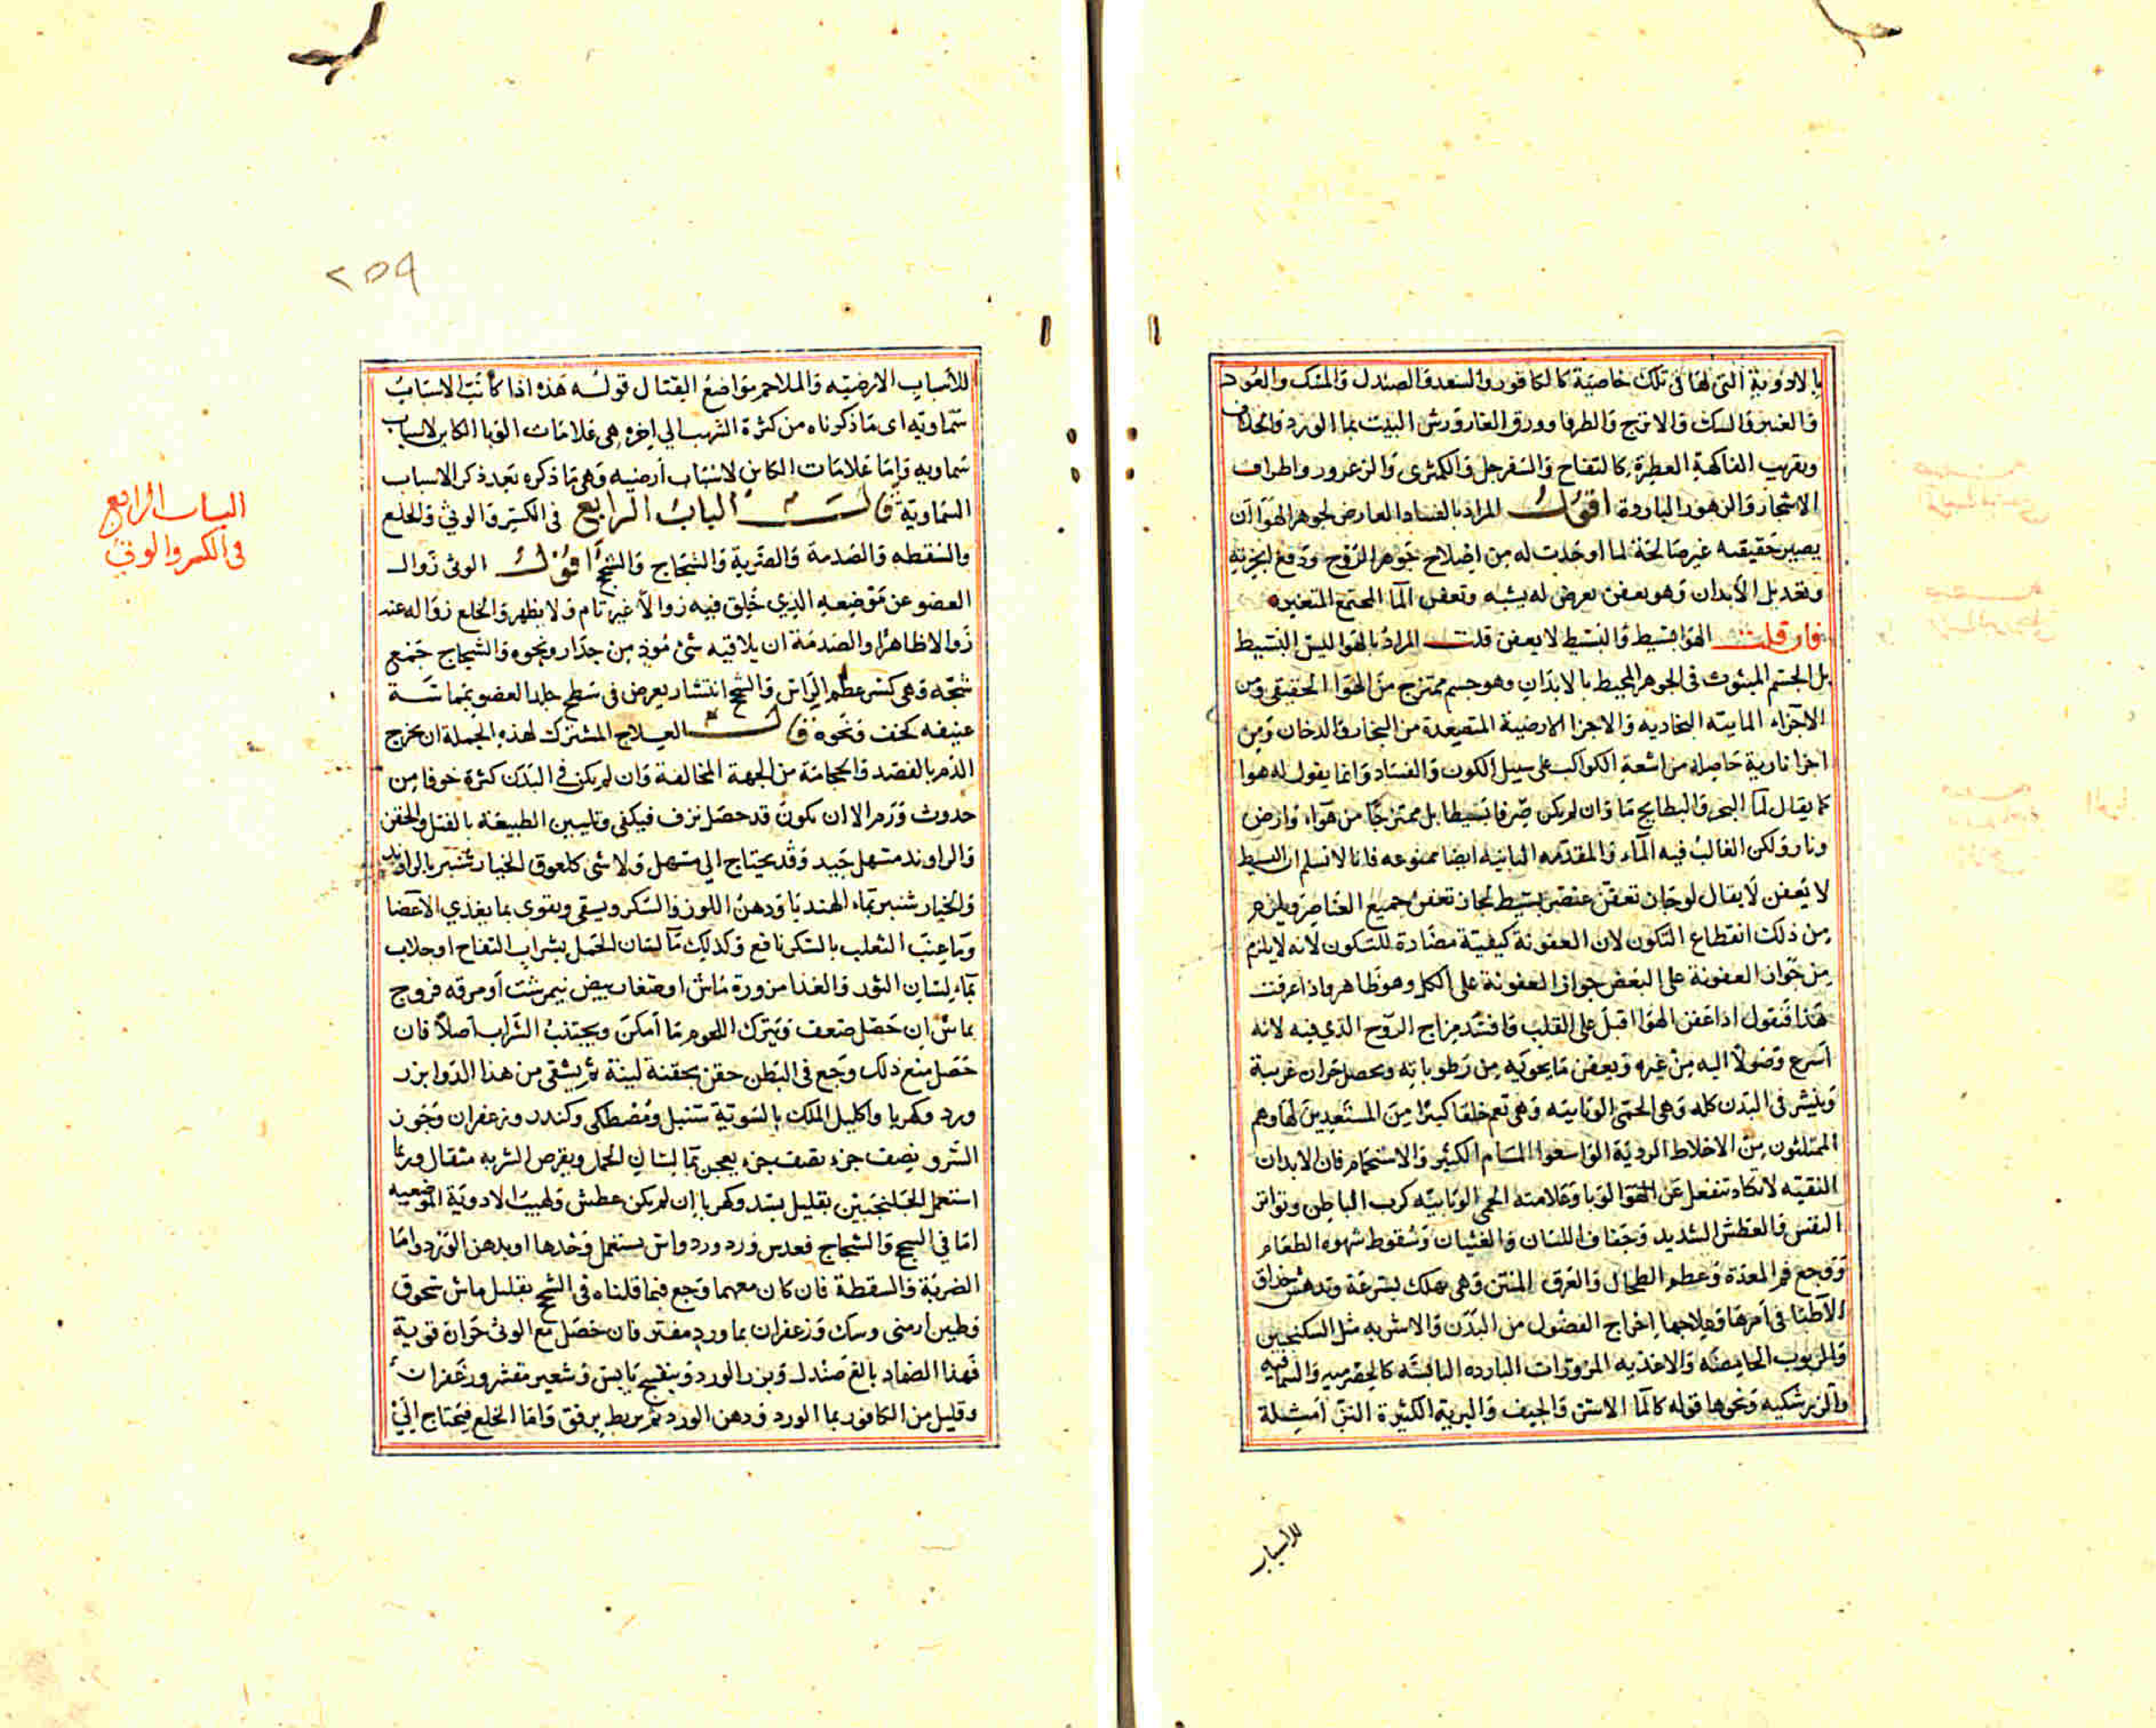 بالادوية التى لها فى تلك خاصية كالكافور والسعد والصندل والمسك والعود
والعنبر والسك والاترج والطرفا وورق الغار ورش البيت بما الورد والخلاف
وبقرب الفاكهة العطرة كالتفاح والسفرجل والكمثرى والزعرور واطراف
الاشجار والزهور الباردة اقول المراد بالفساد العارض لجوهر الهوا ان
يصير حقيقته غير صالحة لما اوجدت له من اصلاح جوهر الروح ودفع ابخرته
وتعديل الابدان وهو بعفن يعرض له يشبه وتعفن الما المجتمع المتغير
فان قلت الهوا بسيط والبسيط لا يعفن قلت المراد بالهوا ليس البسيط
بل الجسم المبثوث فى الجوهر المحيط بالابدان وهو جسم ممتزج من الهوا الحقيقى ومن
الاجزاء المايية البخاريه والاجزا الارضية المتصعدة من البخار والدخان ومن
اجزا نارية حاصله من اشعة الكواكب على سبيل الكون والفساد وانما يقول له هوا
كما يقال لما البحر والبطايح ما وان لم يكن صرفا بسيطا بل ممتزجا من هواء وارض
ونار ولكن الغالب فيه الماء والمقدمه الثانيه ايضا ممنوعه فانا لا نسلم ان البسيط
لا يعفن لا يقال لو جاز تعفن عنصر بسيط لجاز تعفن جميع العناصر ويلزم
من ذلك انقطاع التكون لان العفونة كيفية مضادة للتكون لانه لا يلزم
من جواز العفونة على البعض جواز العفونة على الكل وهو ظاهر واذا عرفت
هذا فنقول اذا عفن الهوا اقبل على القلب فافسد مزاج الروح الذي فيه لانه
اسرع وصولا اليه من غيره ويعفن ما يحويه من رطوباته ويحصل حرارة غريبة
وينشر فى البدن كله وهى الحمى الوبايية وهى تعم خلقا كثيرا من المستعدين لها وهم
الممتلئون من الاخلاط الردية الواسعوا المسام الكثير والاستحمام فان الابدان
النقية لا تكاد تنفعل عن الهوا الوبا وعلامة الحمى الوبايية كرب الباطن وتواتر
النفس والعطش الشديد وجفاف اللسان والغثيان وسقوط شهوة الطعام
ووجع فم المعدة وعظم الطحال والعرق المنتن وهى تهلك بسرعة وتدهش حذاق
الاطبا فى امرها وعلاجها اخراج الفضول من البدن والاشربه مثل السكنجبين
والربوب الحامضه والاغذيه المزورات البارده اليابسه كالحصرميه والسماقيه
والزرشكيه ونحوها قوله كالما الاسن والجيف والبرية الكثيرة النز امثلة
للاسباب
٢٥٩
للاسباب الارضيه والملاحم مواضع القتال قوله هذه اذا كانت الاسباب
سماويه اى ما ذكرناه من كثرة الشهب الي اخره هى علامات الوبا الكاين لاسباب
سماويه واما علامات الكاين لاسباب ارضيه وهى ما ذكره بعد ذكر الاسباب
السماوية قالـ الباب الرابع فى الكسر والوثي والخلع
والسقطه والصدمة والضربة والشجاج والسحج اقول الوثى زوال
العضو عن موضعه الذي خلق فيه زوالا غير تام ولا يظهر والخلع زواله عنه
زوالا ظاهرا والصدمة ان يلاقيه شئ موذ من جدار ونحوه والشجاج جمع
شجه وهى كسر عظم الراس والسحج انتشار يعرض فى سطح جلد العضو بمماسة
عنيفه كخف ونحوه قالـ العلاج المشترك لهذه الجملة ان يخرج
الدم بالفصد والحجامة من الجهة المخالفة وان لم يكن فى البدن كثرة خوفا من
حدوث ورم الا ان يكون قد حصل نزف فيكفى وتليين الطبيعة بالفتل والحقن
والراوند مسهل جيد وقد يحتاج الي مسهل ولا شى كلعوق الخيارشنبر بالراوند
والخيارشنبر بماء الهندبا ودهن اللوز والسكر ويسقى ويقوى بما يغذي الاعضا
وما عنب الثعلب بالسكر نافع وكذلك ما لسان الحمل بشراب التفاح او جلاب
بماء لسان الثور والغذا مزورة ماش او صفار بيض نيمرشت او مرقه فروج
بماش ان حصل ضعف ويترك اللحوم ما امكن ويجتنب الشراب اصلا فان
حصل مع ذلك وجع فى البطن حقن بحقنة لينة ثم يسقى من هذا الدوا بزر
ورد وكهربا واكليل الملك بالسوية سنبل ومصطكى وكندر وزعفران وجوز
السرو نصف جزء نصف جزء يعجن بما لسان الحمل ويقرص الشربه مثقال وربما
استعمل الجلنجبين بقليل بسد وكهربا ان لم يكن عطش ولهيب الادوية الموضعيه
اما فى السحج والشجاج فعدس ورد ورد واس يستعمل وحدها او بدهن الورد واما
الضربة والسقطة فان كان معهما وجع فبما قلناه فى السحج بقليل ماش مسحوق
وطين ارمنى وسك وزعفران بما ورد مفتر فان حصل مع الوثى حرارة قوية
فهذا الضماد بالغ صندل وبزر الورد وبنفسج يابس وشعير مقشر وزعفران
وقليل من الكافور بما الورد ودهن الورد ثم يربط برفق واما الخلع فيحتاج الي
الباب الرابع
فى الكسر والوثى